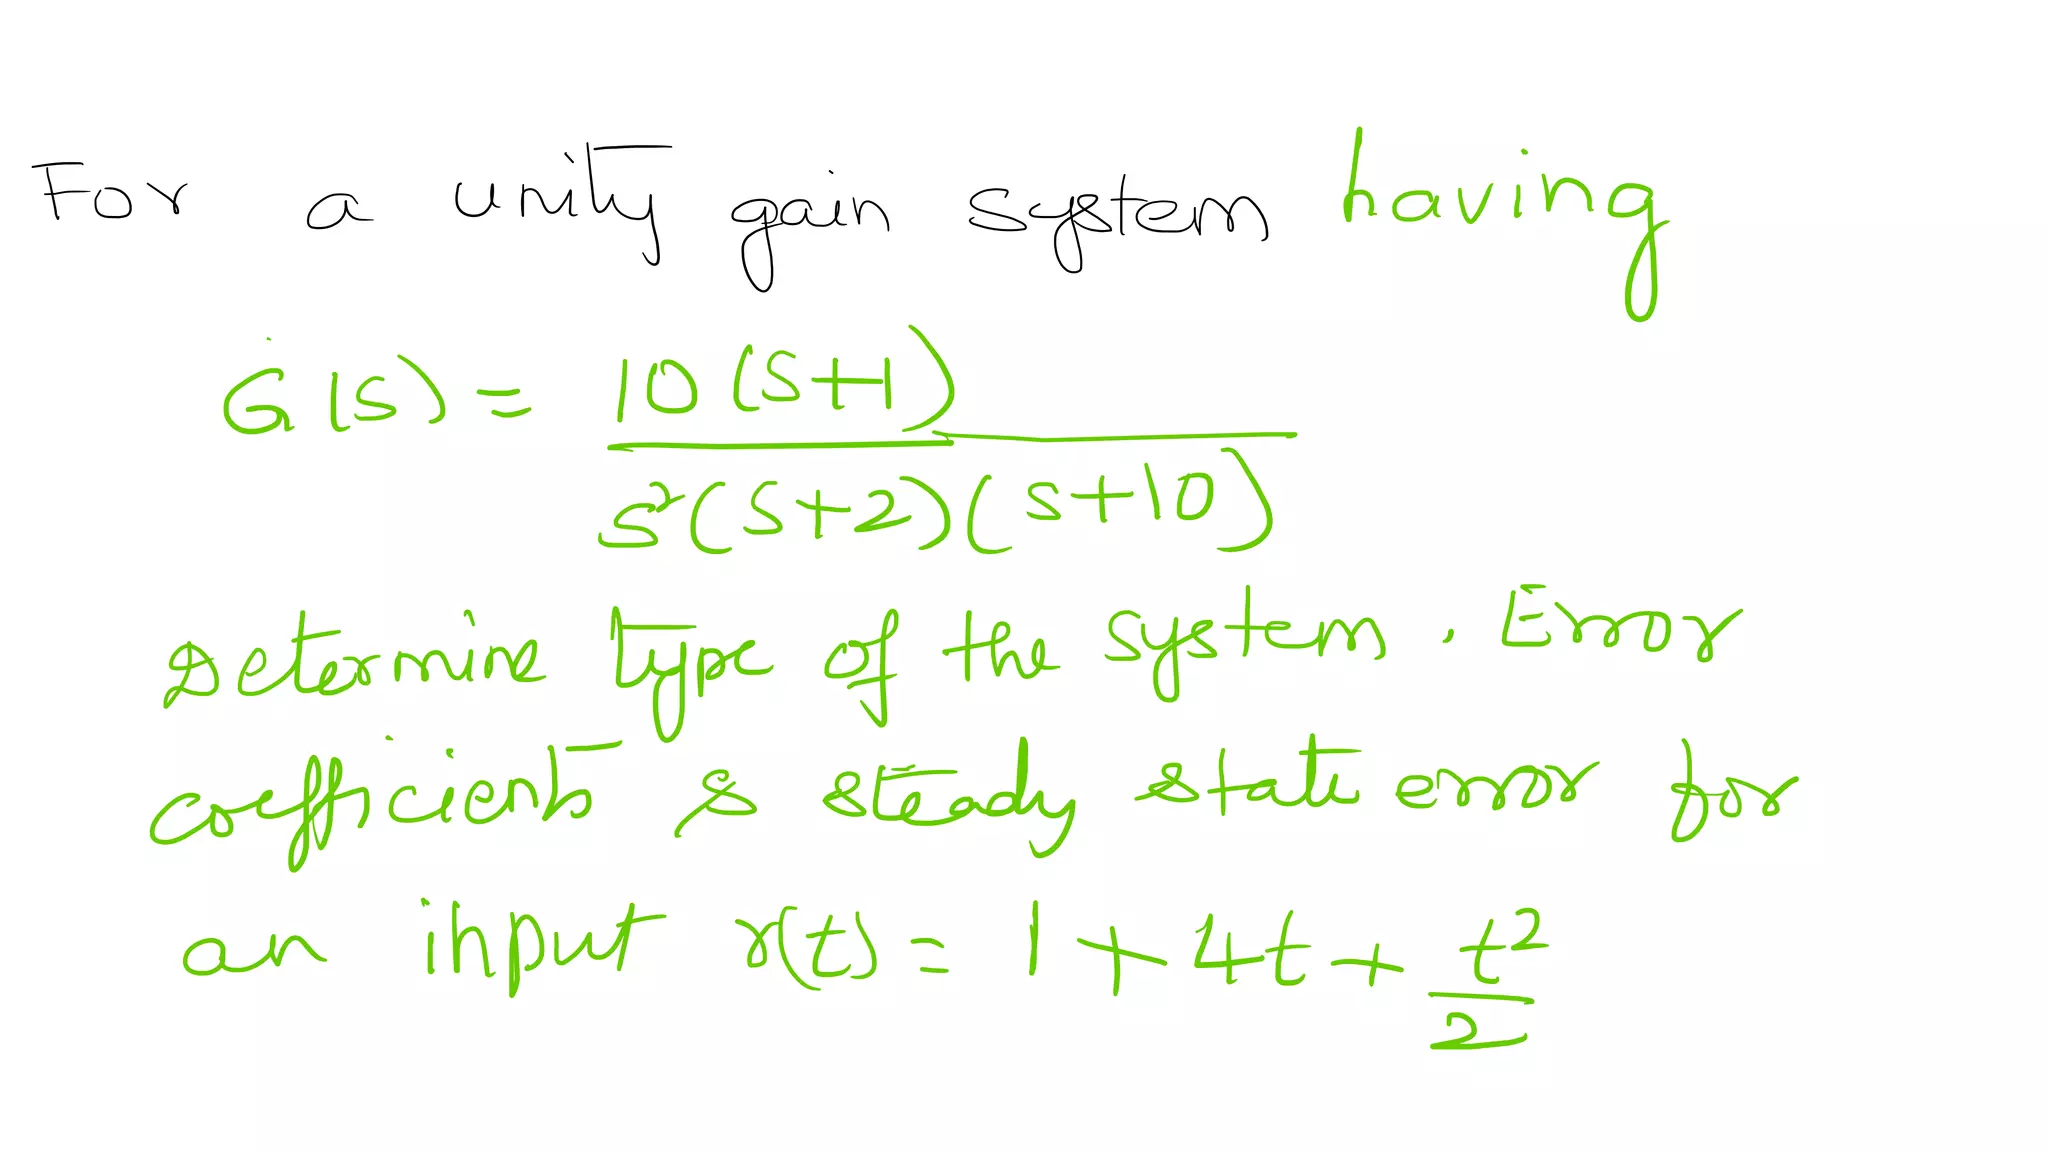 For a unity gain system having
G(s) = 10(s+1)
s²(s+2)(s+10)
Determine type of the system. Error
coefficients & steady state error for
an input r(t) = 1 + 4t + t²
2